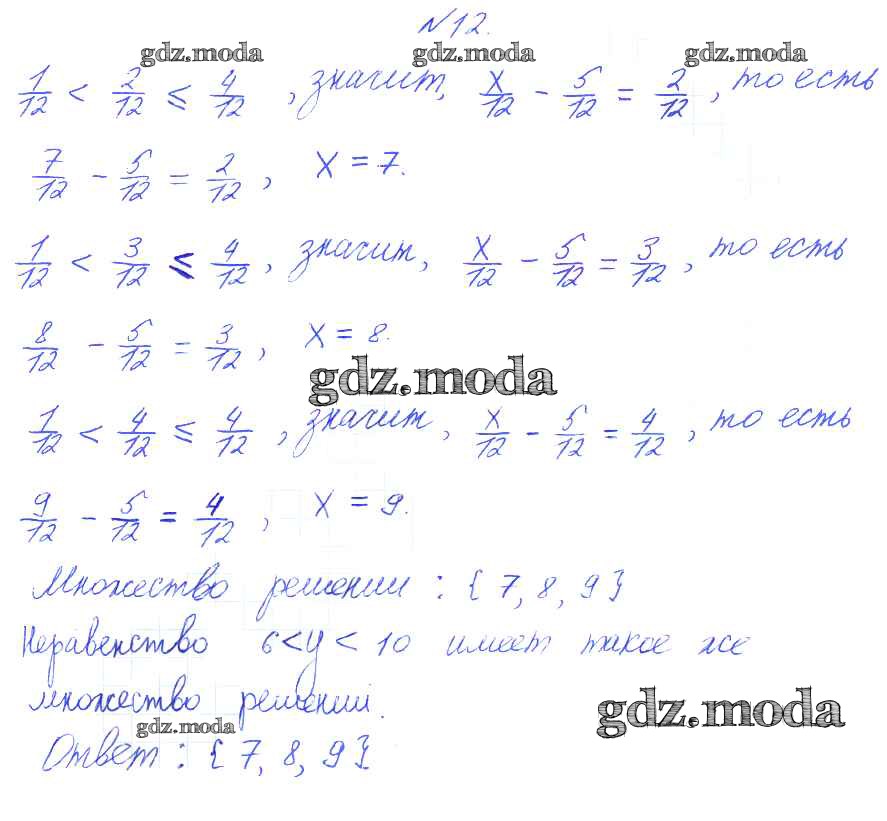 №12.
gdz.moda gdz.moda gdz.moda
1/12 < 2/12 ≤ 4/12, значит, x/12 - 5/12 = 2/12, то есть
7/12 - 5/12 = 2/12, x = 7.
1/12 < 3/12 ≤ 4/12, значит, x/12 - 5/12 = 3/12, то есть
8/12 - 5/12 = 3/12, x = 8.
gdz.moda
1/12 < 4/12 ≤ 4/12, значит, x/12 - 5/12 = 4/12, то есть
9/12 - 5/12 = 4/12, x = 9.
Множество решений: {7, 8, 9}
Неравенство 6 < y < 10 имеет такое же
множество решений.
gdz.moda gdz.moda
Ответ: {7, 8, 9}.